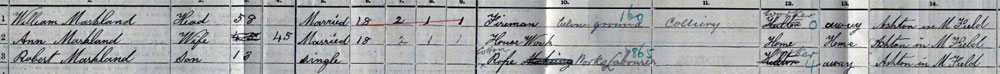 1 William Markland Head 58 Married 18 2 1 1 Fireman below ground 160 Colliery 0 away Ashton in M Field
2 Ann Markland Wife 45 Married 18 2 1 1 House Work Home Home Ashton in M Field
3 Robert Markland Son 13 Single Cotton Rope Works Labourer 865 away Ashton in M Field